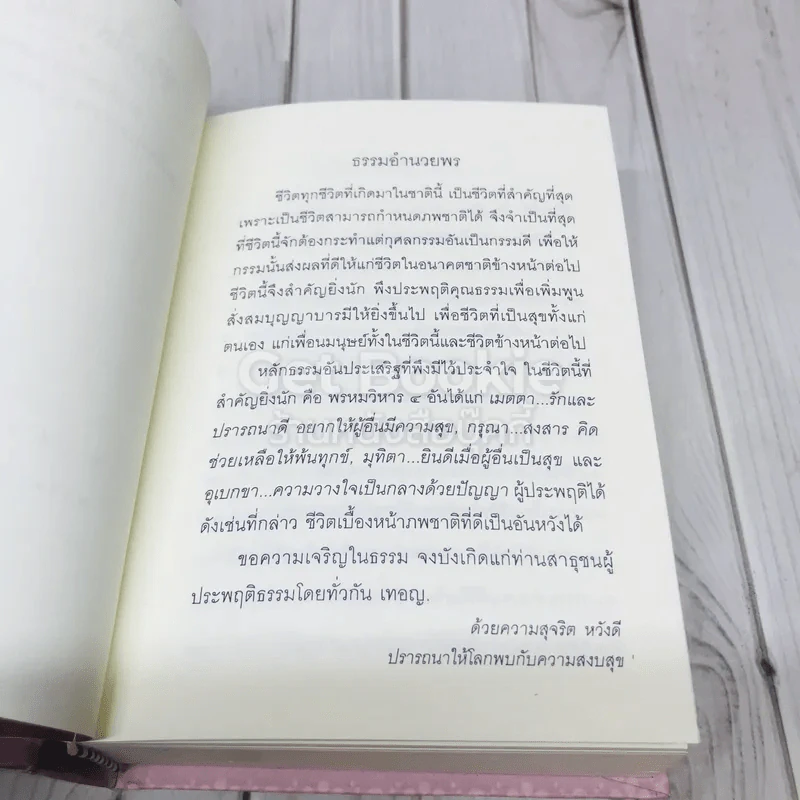 ธรรมอำนวยพร
ชีวิตทุกชีวิตที่เกิดมาในชาตินี้ เป็นชีวิตที่สำคัญที่สุด
เพราะเป็นชีวิตสามารถกำหนดภพชาติได้ จึงจำเป็นที่สุด
ที่ชีวิตนี้จักต้องกระทำแต่กุศลกรรมอันเป็นกรรมดี เพื่อให้
กรรมนั้นส่งผลที่ดีให้แก่ชีวิตในอนาคตชาติข้างหน้าต่อไป
ชีวิตนี้จึงสำคัญยิ่งนัก พึงประพฤติคุณธรรมเพื่อเพิ่มพูน
สั่งสมบุญญาบารมีให้ยิ่งขึ้นไป เพื่อชีวิตที่เป็นสุขทั้งแก่
ตนเอง แก่เพื่อนมนุษย์ทั้งในชีวิตนี้และชีวิตข้างหน้าต่อไป
หลักธรรมอันประเสริฐที่พึงมีไว้ประจำใจ ในชีวิตนี้ที่
สำคัญยิ่งนัก คือ พรหมวิหาร ๔ อันได้แก่ เมตตา...รักและ
ปรารถนาดี อยากให้ผู้อื่นมีความสุข, กรุณา...สงสาร คิด
ช่วยเหลือให้พ้นทุกข์, มุทิตา...ยินดีเมื่อผู้อื่นเป็นสุข และ
อุเบกขา...ความวางใจเป็นกลางด้วยปัญญา ผู้ประพฤติได้
ดังเช่นที่กล่าว ชีวิตเบื้องหน้าภพชาติที่ดีเป็นอันหวังได้
ขอความเจริญในธรรม จงบังเกิดแก่ท่านสาธุชนผู้
ประพฤติธรรมโดยทั่วกัน เทอญ.
ด้วยความสุจริต หวังดี
ปรารถนาให้โลกพบกับความสงบสุข
Get Bookie
ร้านหนังสือบุ๊คกี้